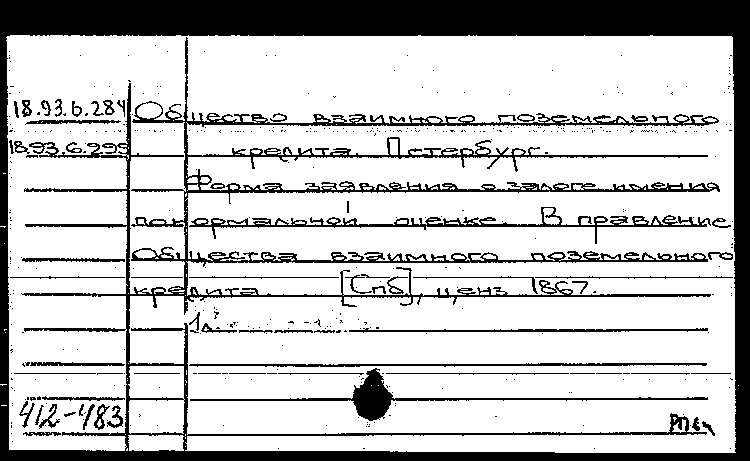 18.93.6.284 Общество взаимного поземельного
18.93.6.295 кредита. Петербург.
Форма заявления о залоге имения
по нормальной оценке. В правление
Общества взаимного поземельного
кредита. [Спб], ценз 1867.
1л.
412-483